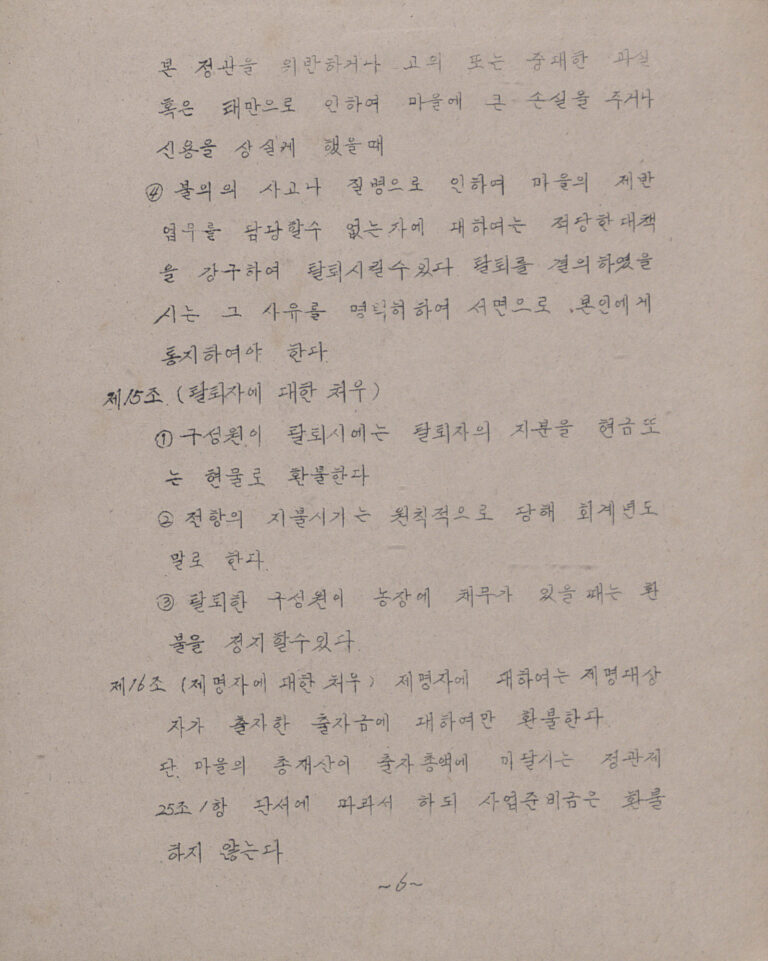 본 정관을 위반하거나 고의 또는 중대한 과실
혹은 태만으로 인하여 마을에 큰 손실을 주거나
신용을 상실케 했을때
④ 불의의 사고나 질병으로 인하여 마을의 제반
업무를 담당할수 없는자에 대하여는 적당한대책
을 강구하여 탈퇴시킬수있다 탈퇴를 결의하였을
시는 그 사유를 명확히하여 서면으로 본인에게
통지하여야 한다
제15조 (탈퇴자에 대한 처우)
① 구성원이 탈퇴시에는 탈퇴자의 지분을 현금또
는 현물로 환불한다
② 전항의 지불시기는 원칙적으로 당해 회계년도
말로 한다.
③ 탈퇴한 구성원이 농장에 채무가 있을때는 환
불을 정지할수있다
제16조 (제명자에 대한 처우) 제명자에 대하여는 제명대상
자가 출자한 출자금에 대하여만 환불한다
단. 마을의 총재산이 출자총액에 미달시는 정관제
25조 1항 단서에 따라서 하되 사업준비금은 환불
하지 않는다
~6~